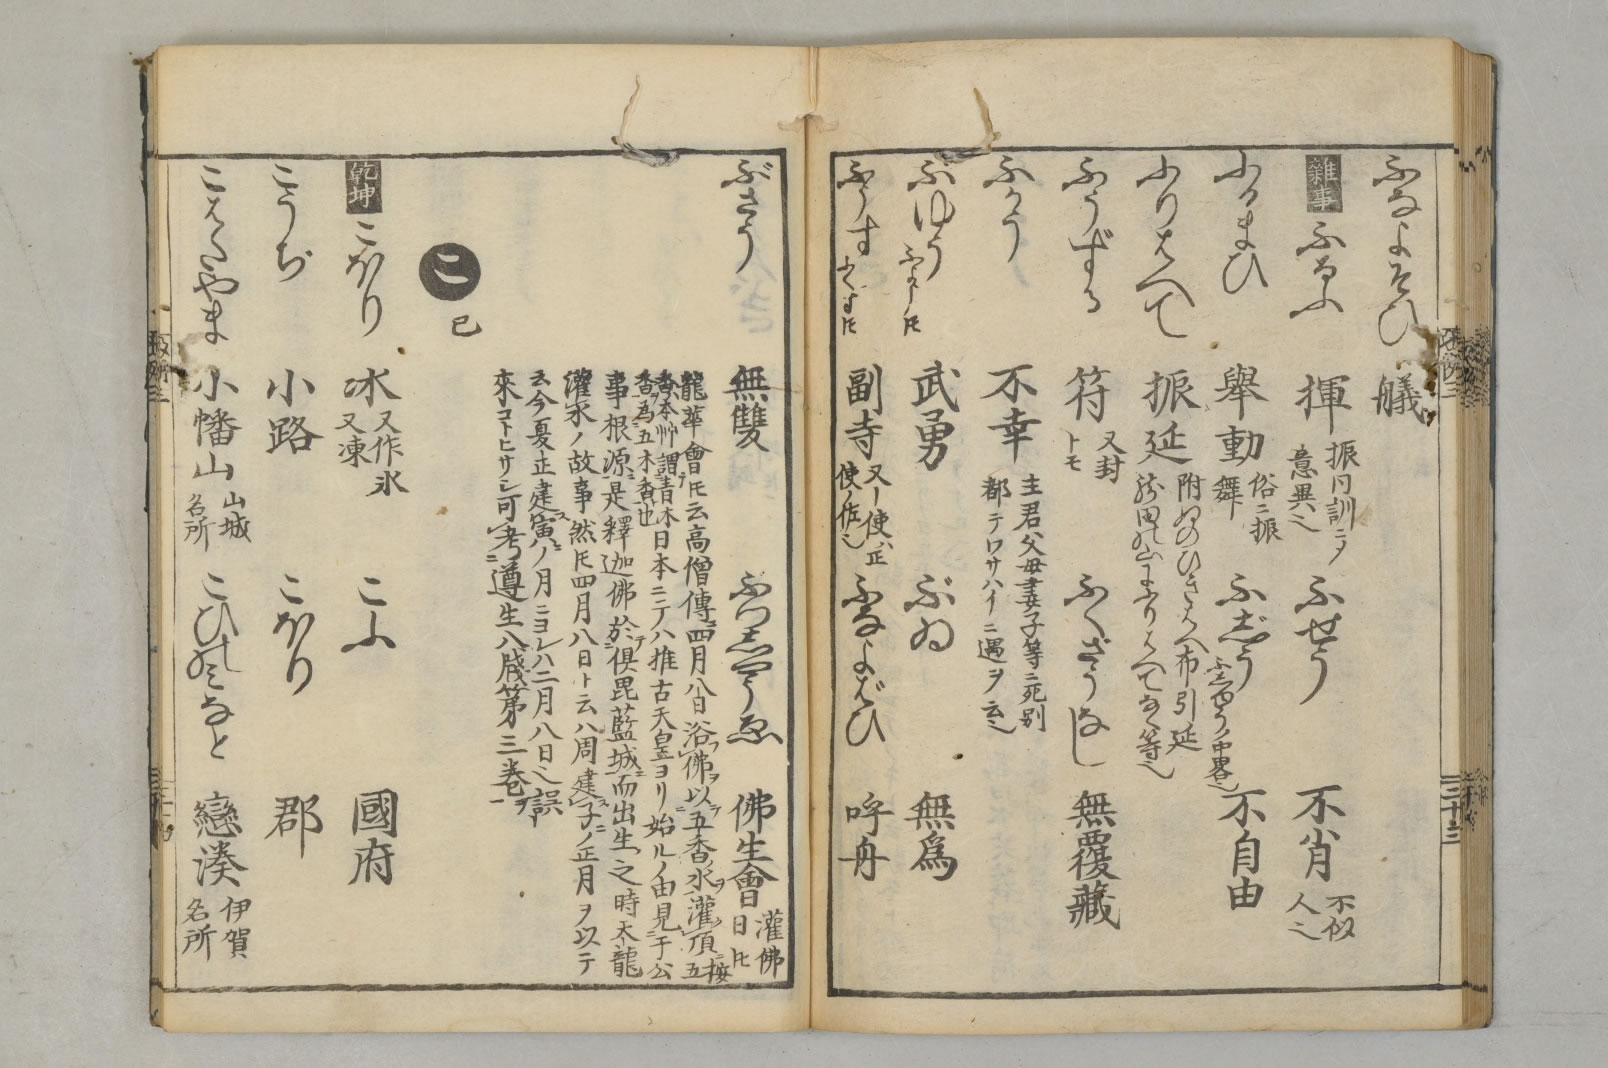 ふなよそひ 艤
雑事 ふるふ 揮 振同訓ニ〆意異也 ふせう 不肖 不似人也
ふるまひ 舉動 俗ニ振舞 ふじう 不自由
ふりはへて 振延
ふうずる 符 又封トモ ふくざうなし 無覆藏
ふかう 不幸 主君父母妻子等ニ死別都テワサハイニ遇ヲ云也
ぶゆう 武勇 ぶゐ 無爲
ふうす 副寺 ふなよばひ 呼舟
ぶさう 無雙 ふつしやうゑ 佛生會 灌佛日トモ
龍華會トモ云高僧傳四月八日浴佛以五香水灌頂
日本ニテハ推古天皇ヨリ始ルノ由見于公
事根源是釋迦佛於倶毘藍城而出生之時大龍
灌水ノ故事然トモ四月八日ト云ハ周建子ノ正月ヲ以テ
云今夏正建寅ノ月ニヨレハ二月八日也誤
來コトヒサシ可考遵生八牋第三卷
こ 己
乾坤 こほり 氷 又作氷又凍 こふ 國府
こうぢ 小路 こほり 郡
こはたやま 小幡山 山城名所 こひのみなと 戀湊 伊賀名所